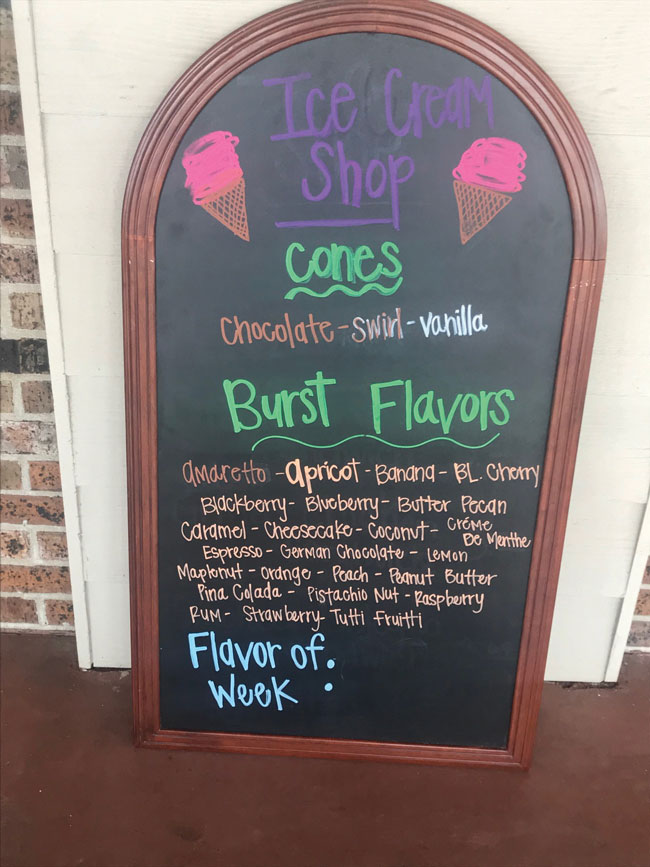 Ice Cream
Shop
Cones
Chocolate - Swirl - Vanilla
Burst Flavors
Amaretto - Apricot - Banana - BL. Cherry
Blackberry - Blueberry - Butter Pecan
Caramel - Cheesecake - Coconut - Créme De Menthe
Espresso - German Chocolate - Lemon
Maplenut - Orange - Peach - Peanut Butter
Pina Colada - Pistachio Nut - Raspberry
Rum - Strawberry - Tutti Fruitti
Flavor of
Week :